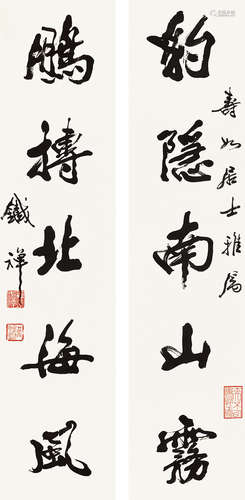 壽如居士雅屬
豹隱南山霧
鵬摶北海風
鐵禪